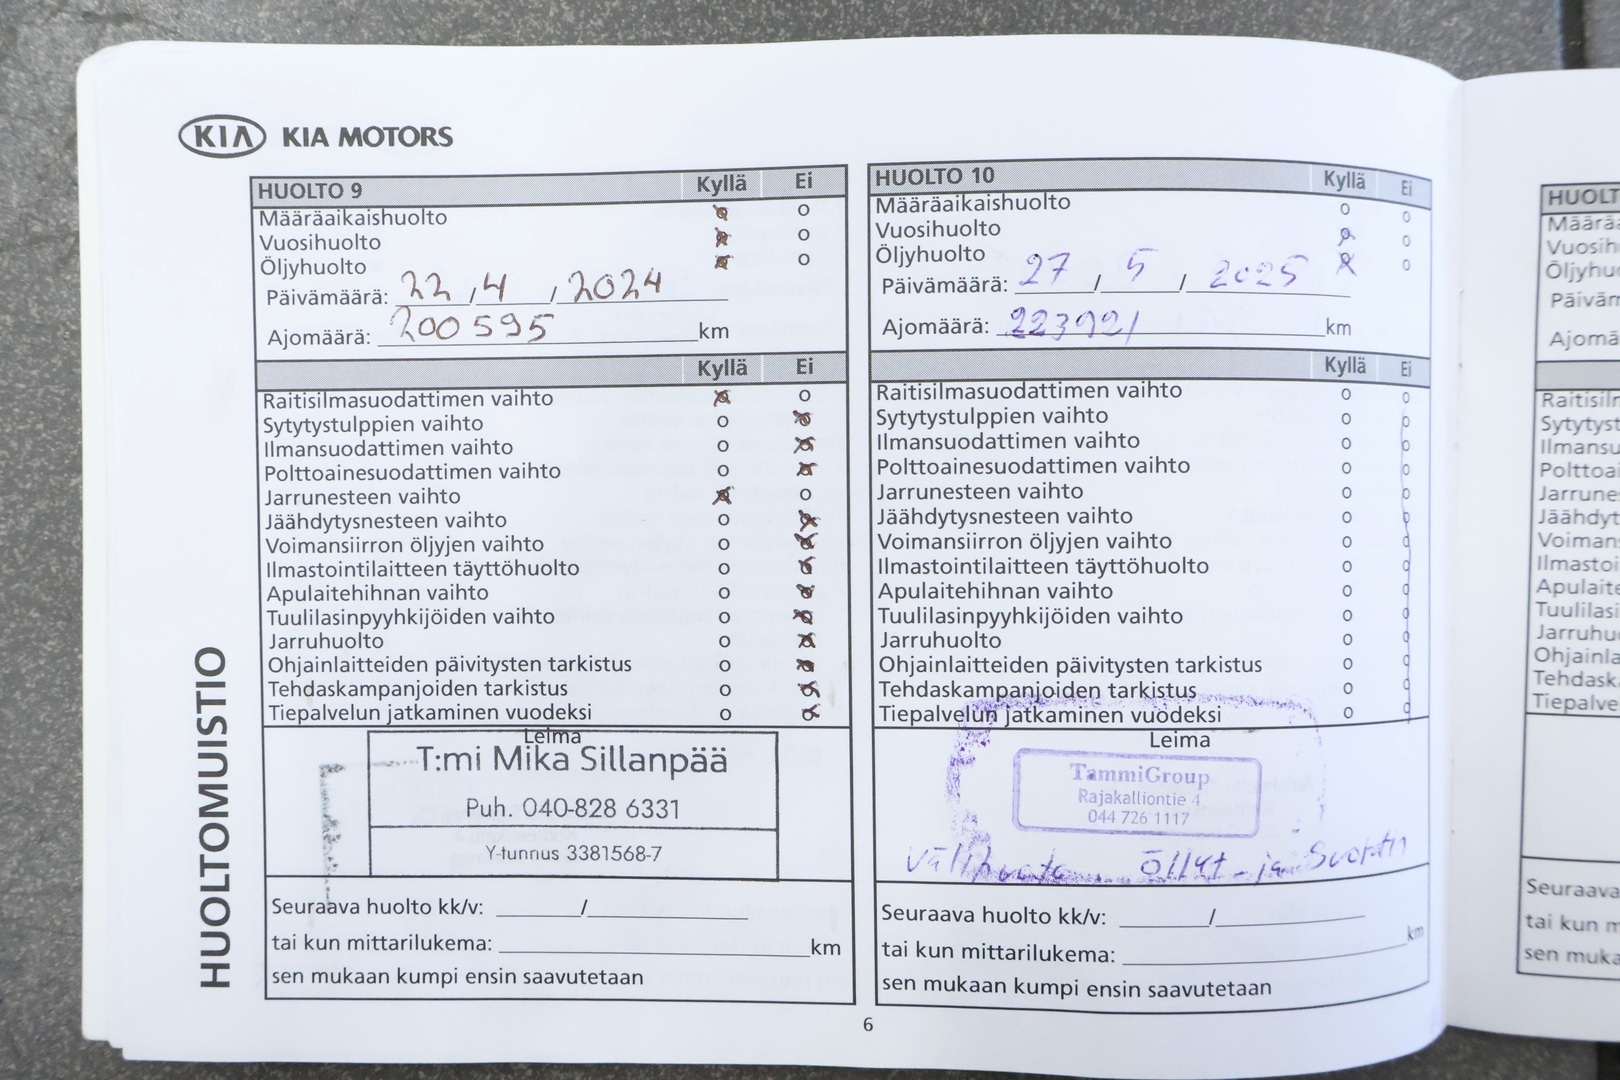 KIA KIA MOTORS
HUOLTOMUISTIO
HUOLTO 9 Kyllä Ei
Määräaikaishuolto o
Vuosihuolto o
Öljyhuolto o
Päivämäärä: 22 / 4 / 2024
Ajomäärä: 200 595 km
Kyllä Ei
Raitisilmasuodattimen vaihto o
Sytytystulppien vaihto o
Ilmansuodattimen vaihto o
Polttoainesuodattimen vaihto o
Jarrunesteen vaihto o
Jäähdytysnesteen vaihto o
Voimansiirron öljyjen vaihto o
Ilmastointilaitteen täyttöhuolto o
Apulaitehihnan vaihto o
Tuulilasinpyyhkijöiden vaihto o
Jarruhuolto o
Ohjainlaitteiden päivitysten tarkistus o
Tehdaskampanjoiden tarkistus o
Tiepalvelun jatkaminen vuodeksi o
Leima
T:mi Mika Sillanpää
Puh. 040-828 6331
Y-tunnus 3381568-7
Seuraava huolto kk/v: /
tai kun mittarilukema: km
sen mukaan kumpi ensin saavutetaan
HUOLTO 10 Kyllä Ei
Määräaikaishuolto o o
Vuosihuolto o
Öljyhuolto o
Päivämäärä: 27 / 5 / 2025
Ajomäärä: 223921 km
Kyllä Ei
Raitisilmasuodattimen vaihto o o
Sytytystulppien vaihto o o
Ilmansuodattimen vaihto o o
Polttoainesuodattimen vaihto o o
Jarrunesteen vaihto o o
Jäähdytysnesteen vaihto o o
Voimansiirron öljyjen vaihto o o
Ilmastointilaitteen täyttöhuolto o o
Apulaitehihnan vaihto o o
Tuulilasinpyyhkijöiden vaihto o o
Jarruhuolto o o
Ohjainlaitteiden päivitysten tarkistus o o
Tehdaskampanjoiden tarkistus o o
Tiepalvelun jatkaminen vuodeksi o o
Leima
TammiGroup
Rajakalliontie 4
044 726 1117
Seuraava huolto kk/v: /
tai kun mittarilukema: km
sen mukaan kumpi ensin saavutetaan
6
HUOLT
Määräa
Vuosih
Öljyhu
Päiväm
Ajomä
Raitisiln
Sytytyst
Ilmansu
Polttoai
Jarrune
Jäähdyt
Voimans
Ilmastoi
Apulaite
Tuulilasi
Jarruhu
Ohjainla
Tehdask
Tiepalve
Seuraava
tai kun m
sen muka